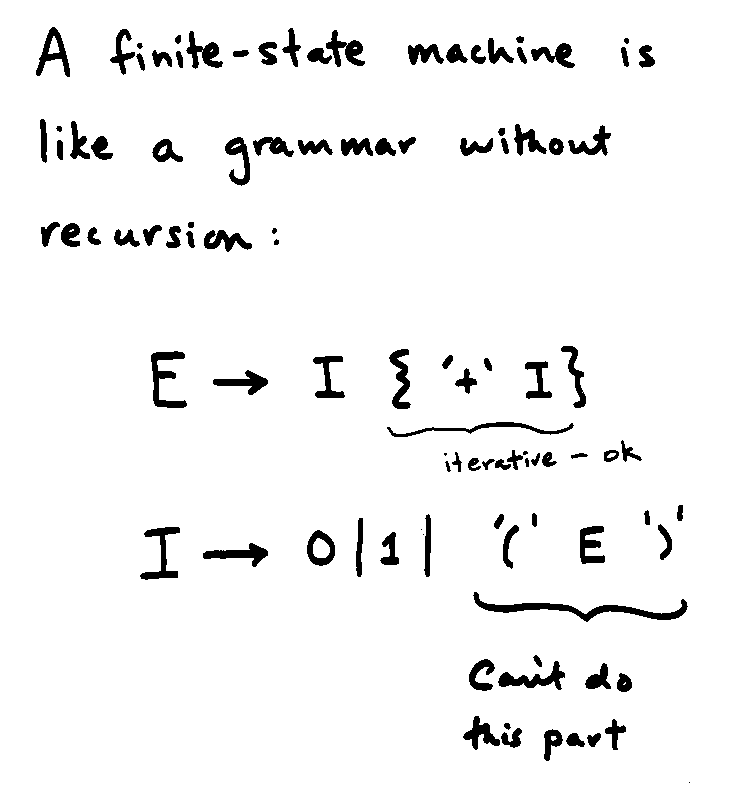 A finite-state machine is
like a grammar without
recursion:
E → I { '+' I }
iterative - ok
I → 0 | 1 | '(' E ')'
Can't do
this part